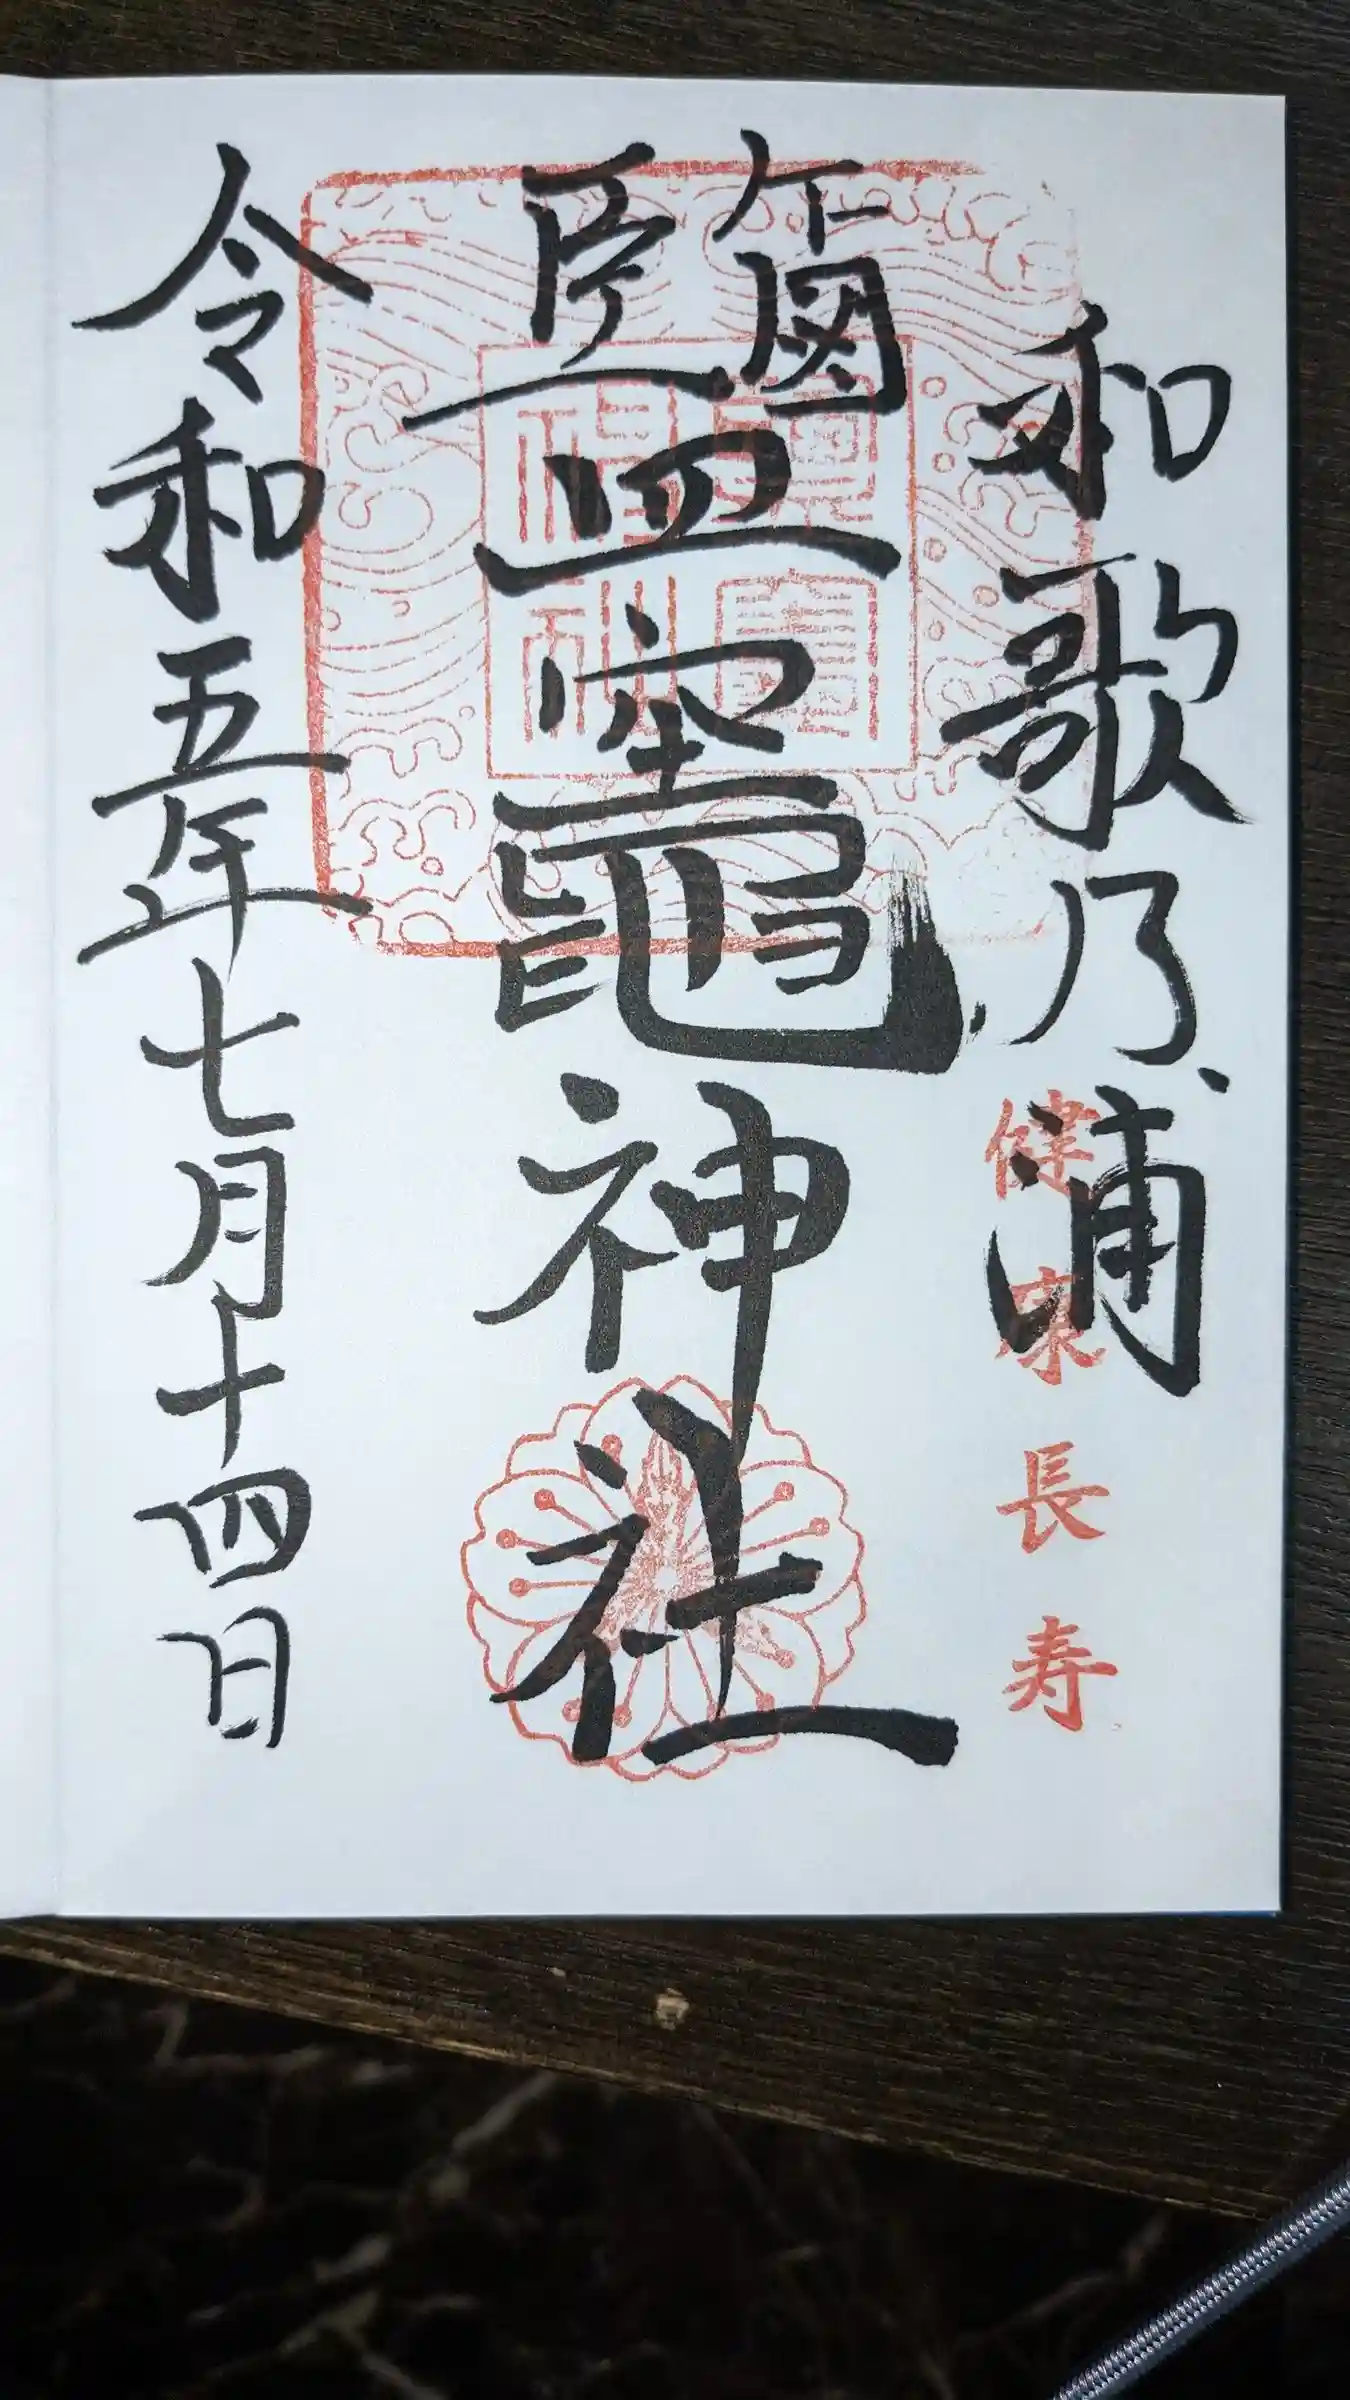 和歌乃浦
健康長寿
鹽竈神社
令和五年七月十四日